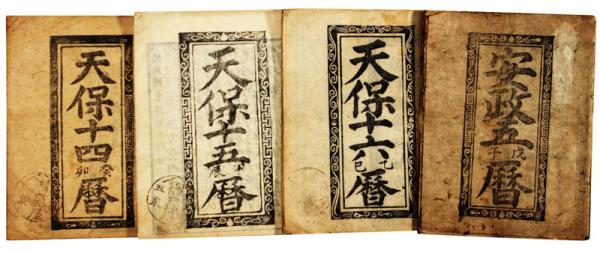 天保十四癸卯暦
天保十五暦
天保十六乙巳暦
安政五戊暦